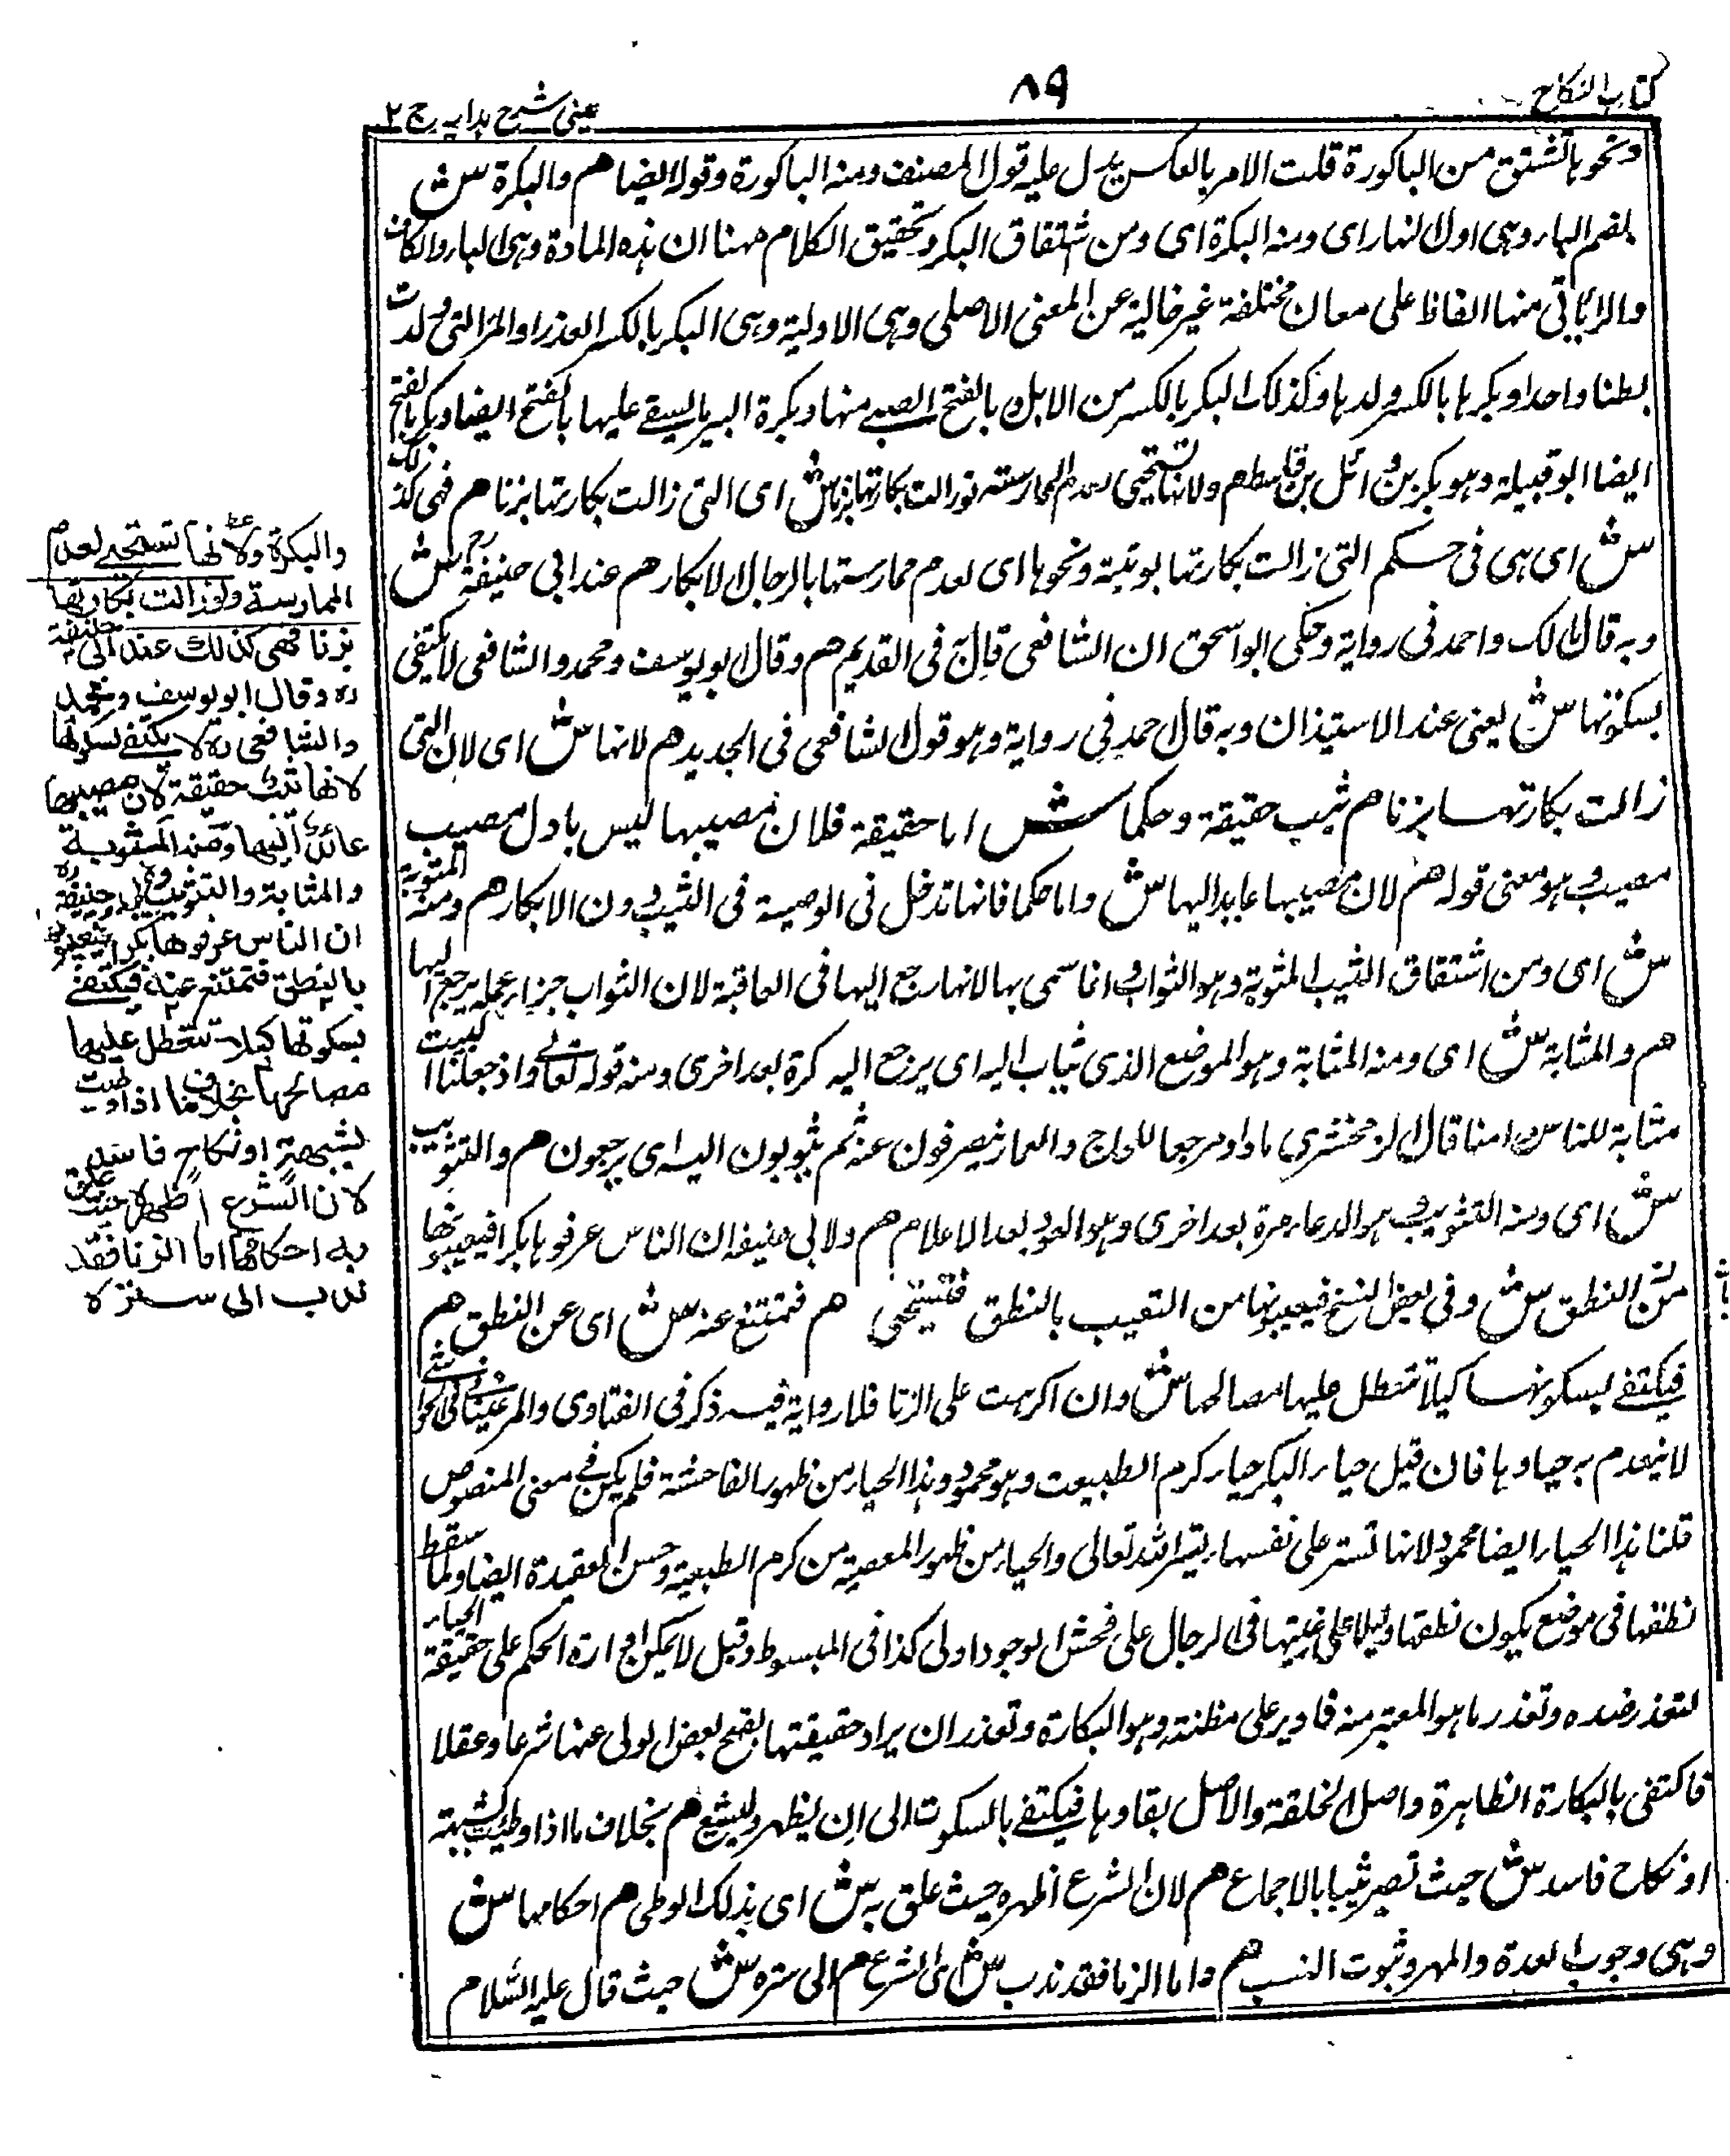 كتاب النكاح
٨٩
عينى شرح هدايه ج ٢
ونحوها تشتق من الباكورة قلت الامر بالعكس يدل عليه قول المصنف ومنه الباكورة وقوله ايضا هم والبكرة ش
بضم الباء وهى اول النهار اى ومنه البكرة اى ومن اشتقاق البكر وتحقيق الكلام ههنا ان هذه المادة وهى الباء والكاف
والراء ياتى منها الفاظ على معان مختلفة غير خالية عن المعنى الاصلى وهى الاولية وهى البكر بالكسر العذراء والمرأة التى ولدت
بطنا واحدا وبكرها بالكسر ولدها وكذلك البكر بالكسر من الابل بالفتح الصبى منها وبكرة البير ما يسقى عليها بالفتح ايضا وبكر بالفتح
ايضا ابو قبيلة وهو بكر بن وائل بن قاسط هم ولانها تستحيى لعدم الممارسة ولو زالت بكارتها بزنا ش اى التى زالت بكارتها بزنا هم فهى كذلك
ش اى هى فى حكم التى زالت بكارتها بوثبة ونحوها اى لعدم ممارستها بالرجال لابكارهم عند ابى حنيفة رح ش
وبه قال مالك واحمد فى رواية وحكى ابو اسحق ان الشافعى قال فى القديم هم وقال ابو يوسف ومحمد والشافعى لا يكتفى
بسكوتها ش يعنى عند الاستيذان وبه قال احمد فى رواية وهو قول الشافعى فى الجديد هم لانها ش اى لان التى
زالت بكارتها بزنا هم ثيب حقيقة وحكما ش اما حقيقة فلان مصيبها ليس باول مصيب
مصيب وهو معنى قوله هم لان مصيبها عايد اليها ش واما حكما فانها تدخل فى الوصية فى الثيب دون الابكار هم ومنه المثوبة
ش اى ومن اشتقاق الثيب المثوبة وهو الثواب انما سمى بها لانها رجع اليها فى العاقبة لان الثواب جزاء عمله يرجع اليها
هم والمثابة ش اى ومنه المثابة وهو الموضع الذى يثاب اليه اى يرجع اليه كرة بعد اخرى ومنه قوله تعالى واذ جعلنا البيت
مثابة للناس وامنا قال الزمخشرى ماوا ومرجعا للحاج والعمار ينصرفون عنه ثم يثوبون اليه اى يرجعون هم والتثويب
ش اى ومنه التثويب هو الدعاء مرة بعد اخرى وهو العود بعد الاعلام هم ولابى حنيفة ان الناس عرفوها بكرا فيعيبونها
من النطق ش وفى بعض النسخ فيعيبونها من التعيب بالنطق فتستحيى هم فتمتنع عنه ش اى عن النطق هم
فيكتفى بسكوتها كيلا تتعطل عليها مصالحها ش وان اكرهت على الزنا فلا رواية فيه ذكر فى الفتاوى والمرغينانى
لا ينعدم به حياوها فان قيل حياء البكر حياء كرم الطبيعت وهو محمود وهذا الحياء من ظهور الفاحشة فلم يكن فى معنى المنصوص
قلنا هذا الحياء ايضا محمود لانها تستر على نفسها بستر الله تعالى والحياء من ظهور المعصية من كرم الطبيعة وحسن العقيدة ايضا ولما سقط
نطقها فى موضع يكون نطقها دليلا على رغبتها فى الرجال على فحش الوجود اولى كذا فى المبسوط وقيل لا يمكن ادارة الحكم على حقيقة الحياء
لتعذر ضده وتعذر ما هو المعتبر منه فادير على مظنته وهو البكارة وتعذر ان يراد حقيقتها بقبح بعض الولى عنها شرعا وعقلا
فاكتفى بالبكارة الظاهرة واصل الخلقة والاصل بقاوها فيكتفى بالسكوت الى ان يظهر ويشيع هم بخلاف ما اذا وطيت بشبهة
او نكاح فاسد ش حيث تصير ثيبا بالاجماع هم لان الشرع اظهره حيث علق به ش اى بذلك الوطى هم احكامها ش
وهى وجوب العدة والمهر وثبوت النسب هم واما الزنا فقد ندب ش اى الشرع هم الى ستره ش حيث قال عليه السلام
والبكرة ولانها تستحيى لعدم
الممارسة ولو زالت بكارتها
بزنا فهى كذلك عند ابى حنيفة
ره وقال ابو يوسف ومحمد
والشافعى ره لا يكتفى بسكوتها
لانها ثيب حقيقة لان مصيبها
عائد اليها ومنه المثوبة
والمثابة والتثويب ولابى حنيفة ره
ان الناس عرفوها بكرا فيعيبونها
بالنطق فتمتنع عنه فيكتفى
بسكوتها كيلا تتعطل عليها
مصالحها بخلاف ما اذا وطيت
بشبهة او نكاح فاسد
لان الشرع اظهره حيث علق
به احكامها اما الزنا فقد
ندب الى ستره